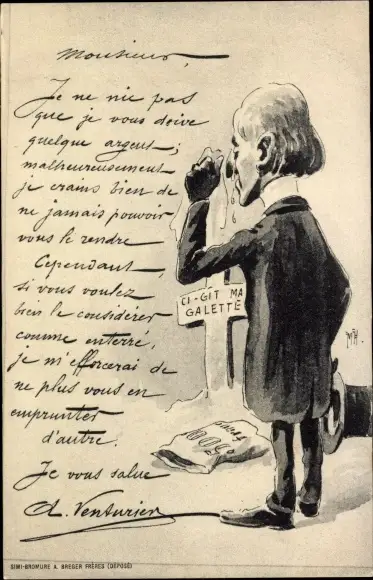 Monsieur,
Je ne nie pas
que je vous doive
quelque argent;
malheureusement
je crains bien de
ne jamais pouvoir
vous le rendre
Cependant,
si vous voulez
bien le considérer
comme enterré,
je m'efforcerai de
ne plus vous en
emprunter
d'autre.
Je vous salue
A. Venturier
CI-GIT MA
GALETTE
10000
MH.
SIMI-BROMURE A. BREGER FRÈRES (DÉPOSÉ)